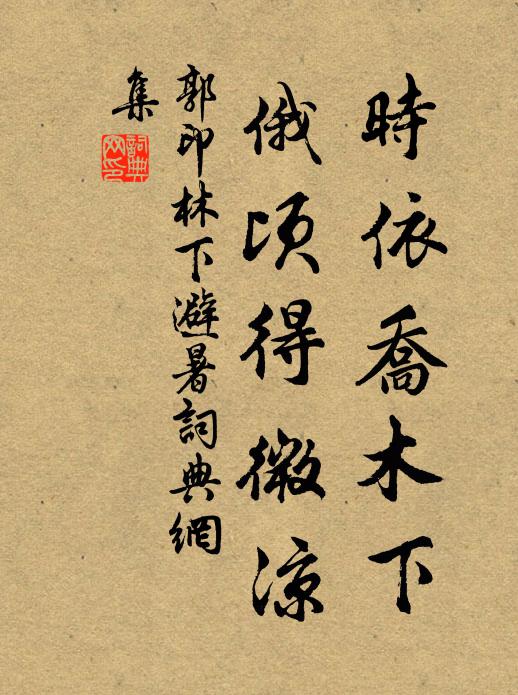 時依喬木下
俄頃得微涼
郭印林下避暑詞典網
集
詞典
網印